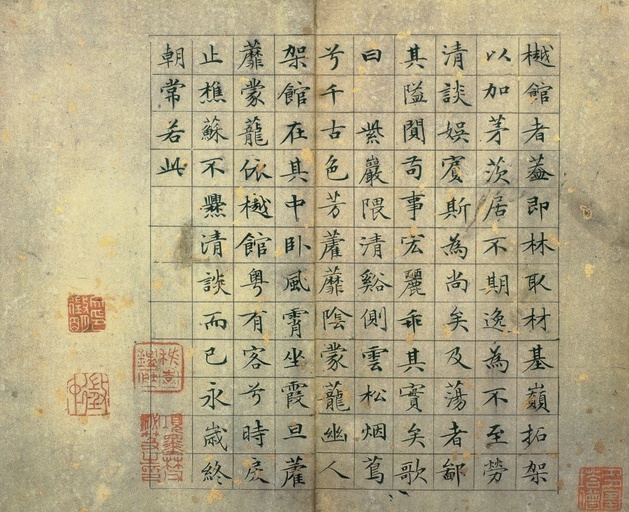 樾館者葢即林取材基嶺拓架
以加茅茨居不期逸為不至勞
清談娛賔斯為尚矣及蕩者鄙
其隘閴苟事宏麗乖其實矣歌
曰 紫巖隈清谿側雲松烟蔦
兮千古色芳蘿蘼陰蒙蘢幽人
架館在其中卧風霄坐霞旦蘿
蘼蒙龍依樾館粤有客兮時戾
止樵蘇不爨清談而已永歲終
朝常若此